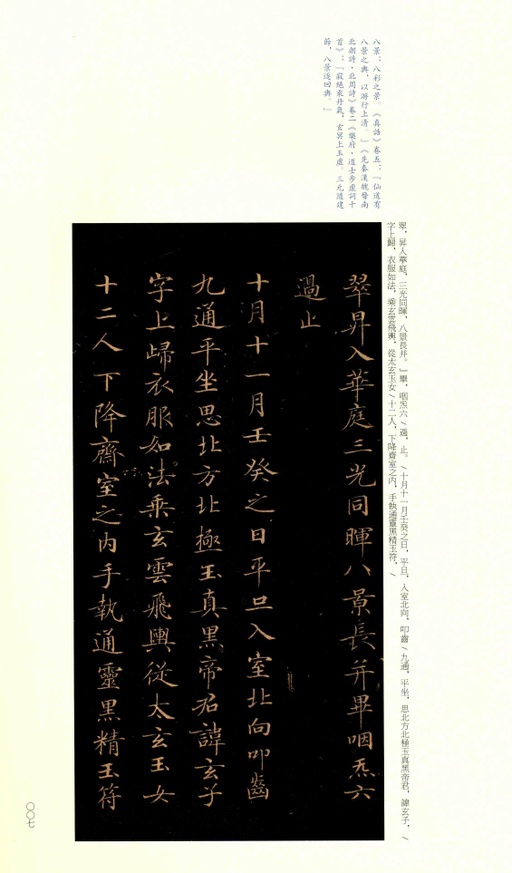 八景：八彩之景。《真誥》卷五：「仙道有
八景之輿，以游行上清。」《先秦漢魏晉南
北朝詩·北周詩》卷二《樂府·道士步虛詞十
首》：「寂絕乘丹氣，玄冥上玉虛。三元隨建
節，八景逐回輿。」
翠，昇入華庭，三光同暉，八景長并。」畢，咽炁六╲過，止。╲十月十一月壬癸之日，平旦，入室北向，叩齒╲九通，平坐，思北方北極玉真黑帝君，諱玄子，╲
字上歸，衣服如法，乘玄雲飛輿，從太玄玉女╲十二人，下降齋室之內，手執通靈黑精玉符，╲
翠昇入華庭三光同暉八景長并畢咽炁六
過止
十月十一月壬癸之日平旦入室北向叩齒
九通平坐思北方北極玉真黑帝君諱玄子
字上歸衣服如法乘玄雲飛輿從太玄玉女
十二人下降齋室之内手執通靈黑精玉符
〇〇七